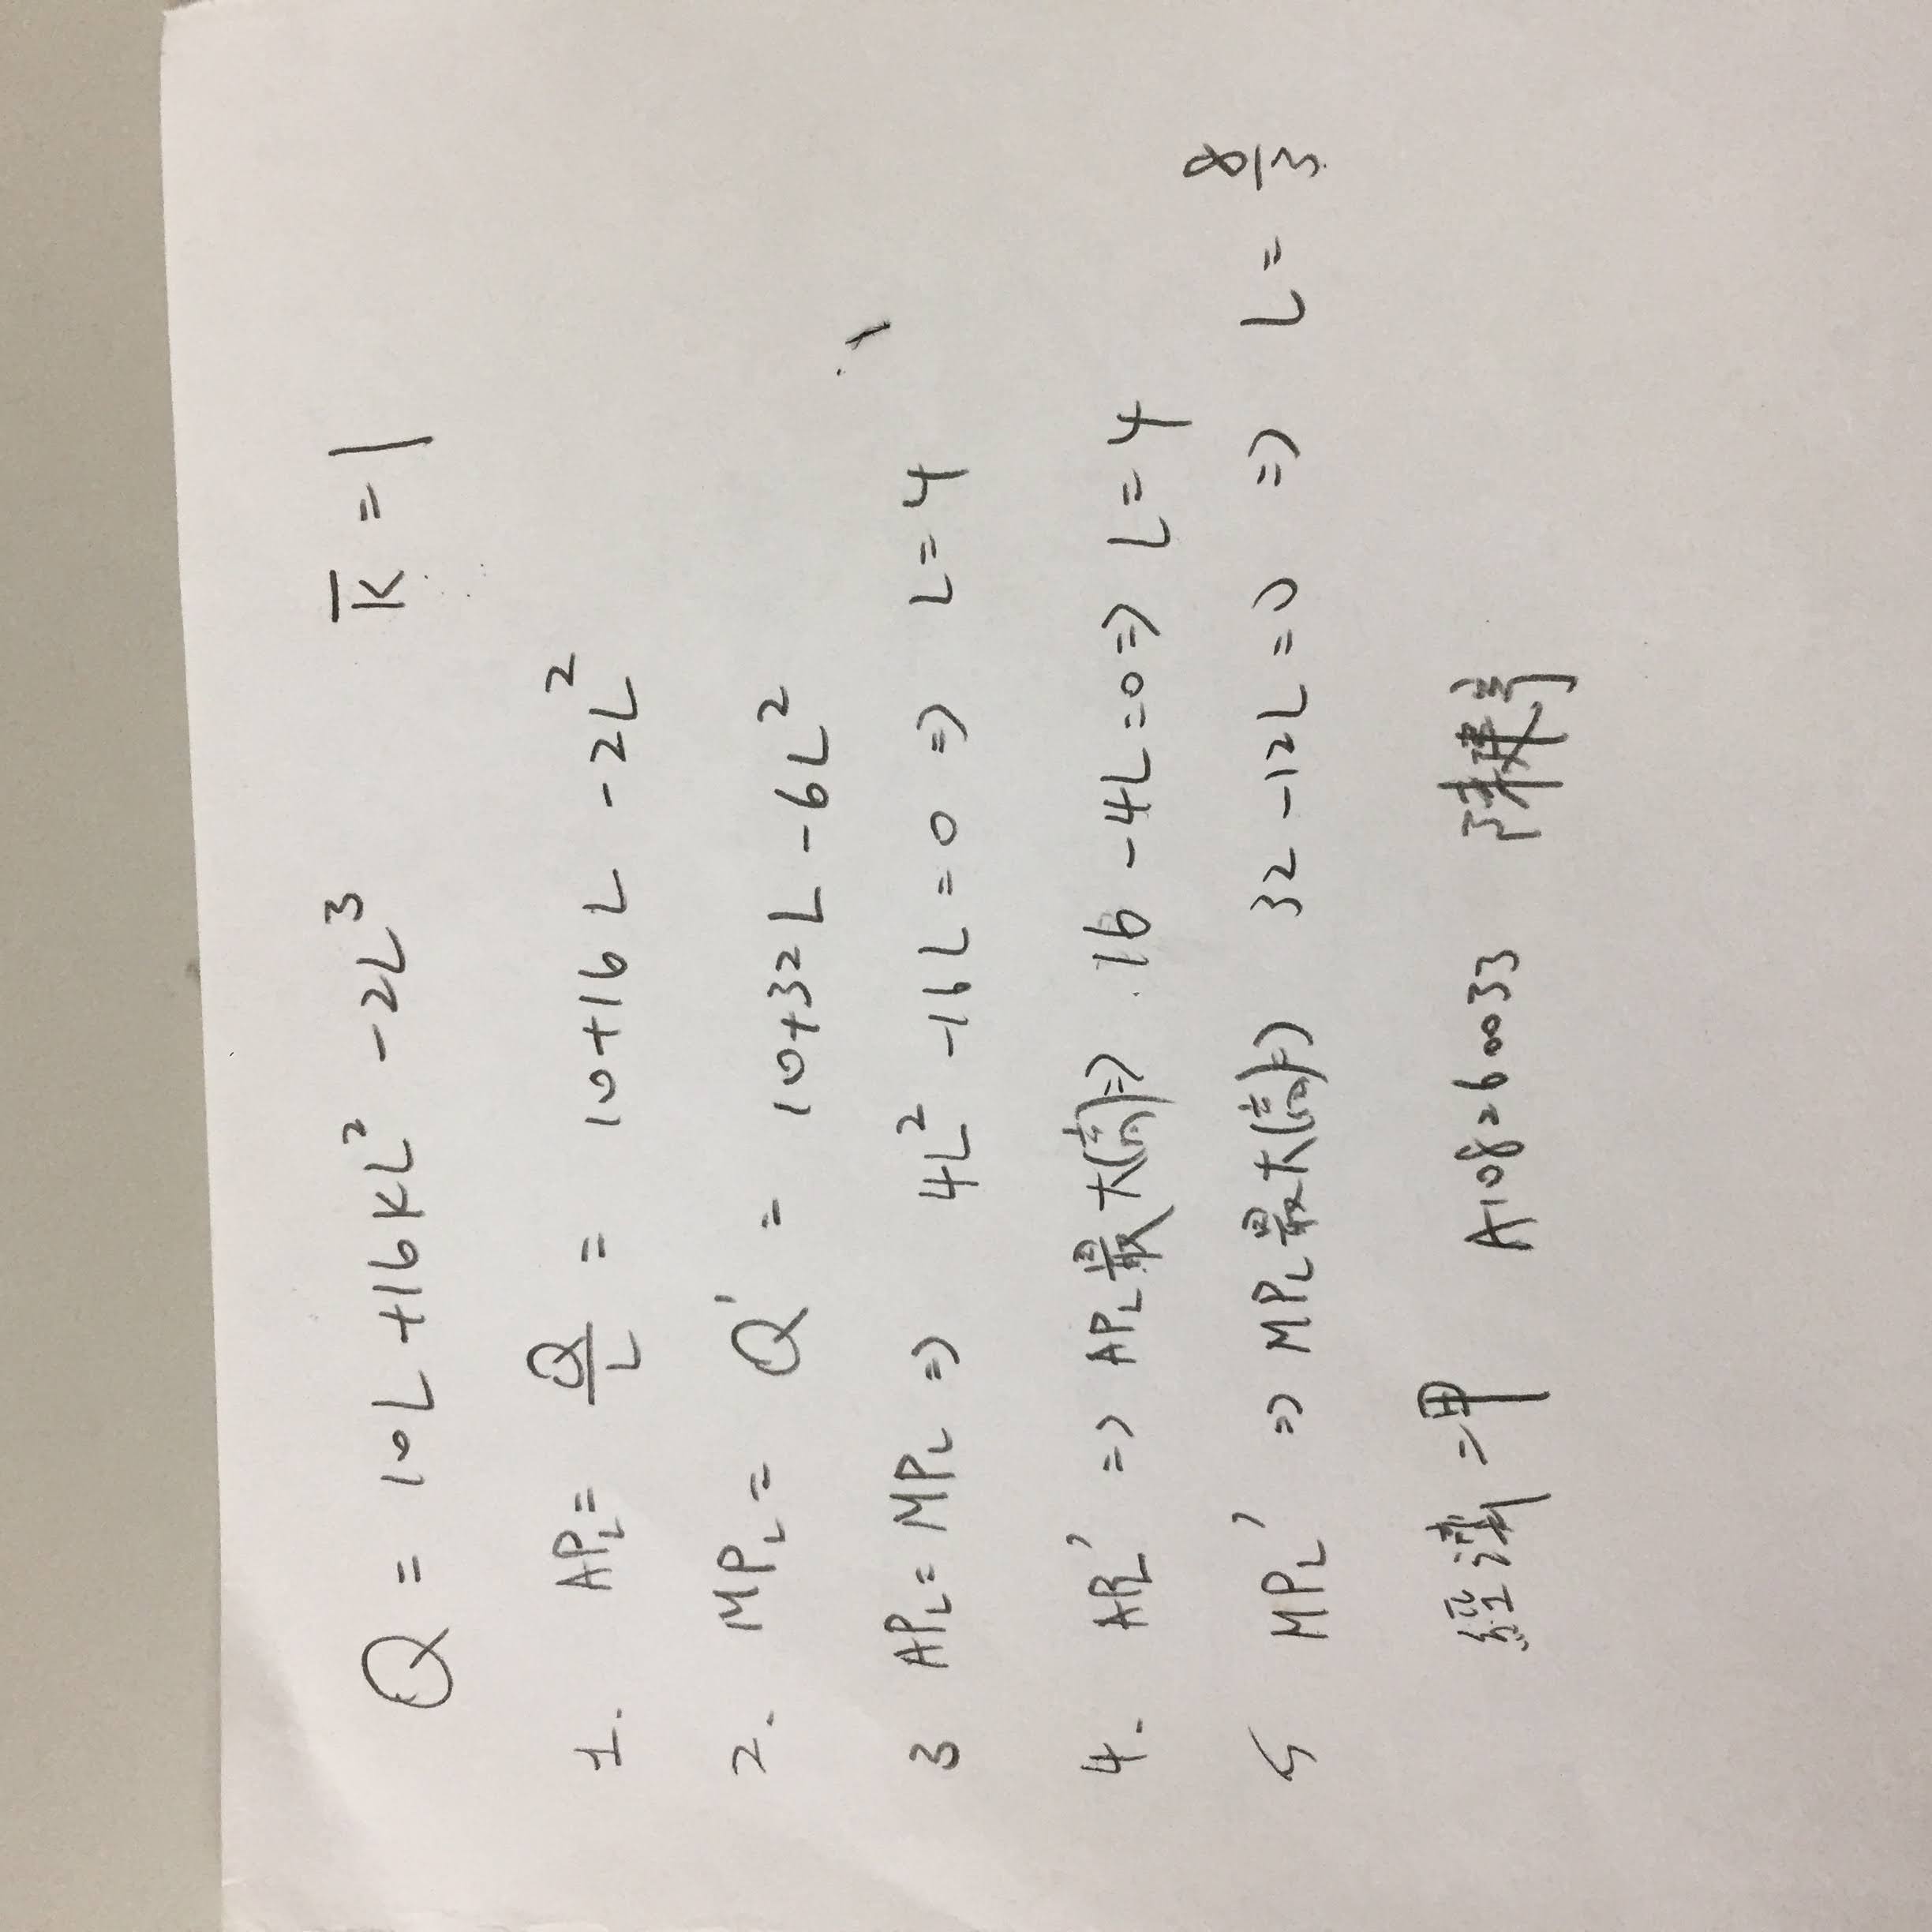 Q = 10L + 16KL² - 2L³ K̅ = 1
1. APL = Q/L = 10+16L - 2L²
2. MPL = Q' = 10+32L - 6L²
3 APL = MPL => 4L² - 16L = 0 => L = 4
4. APL' => APL最大(高)=> 16 - 4L = 0 => L = 4
5 MPL' => MPL最大(高)=> 32 - 12L = 0 => L = 8/3
經濟二甲 A108260033 陳建亨